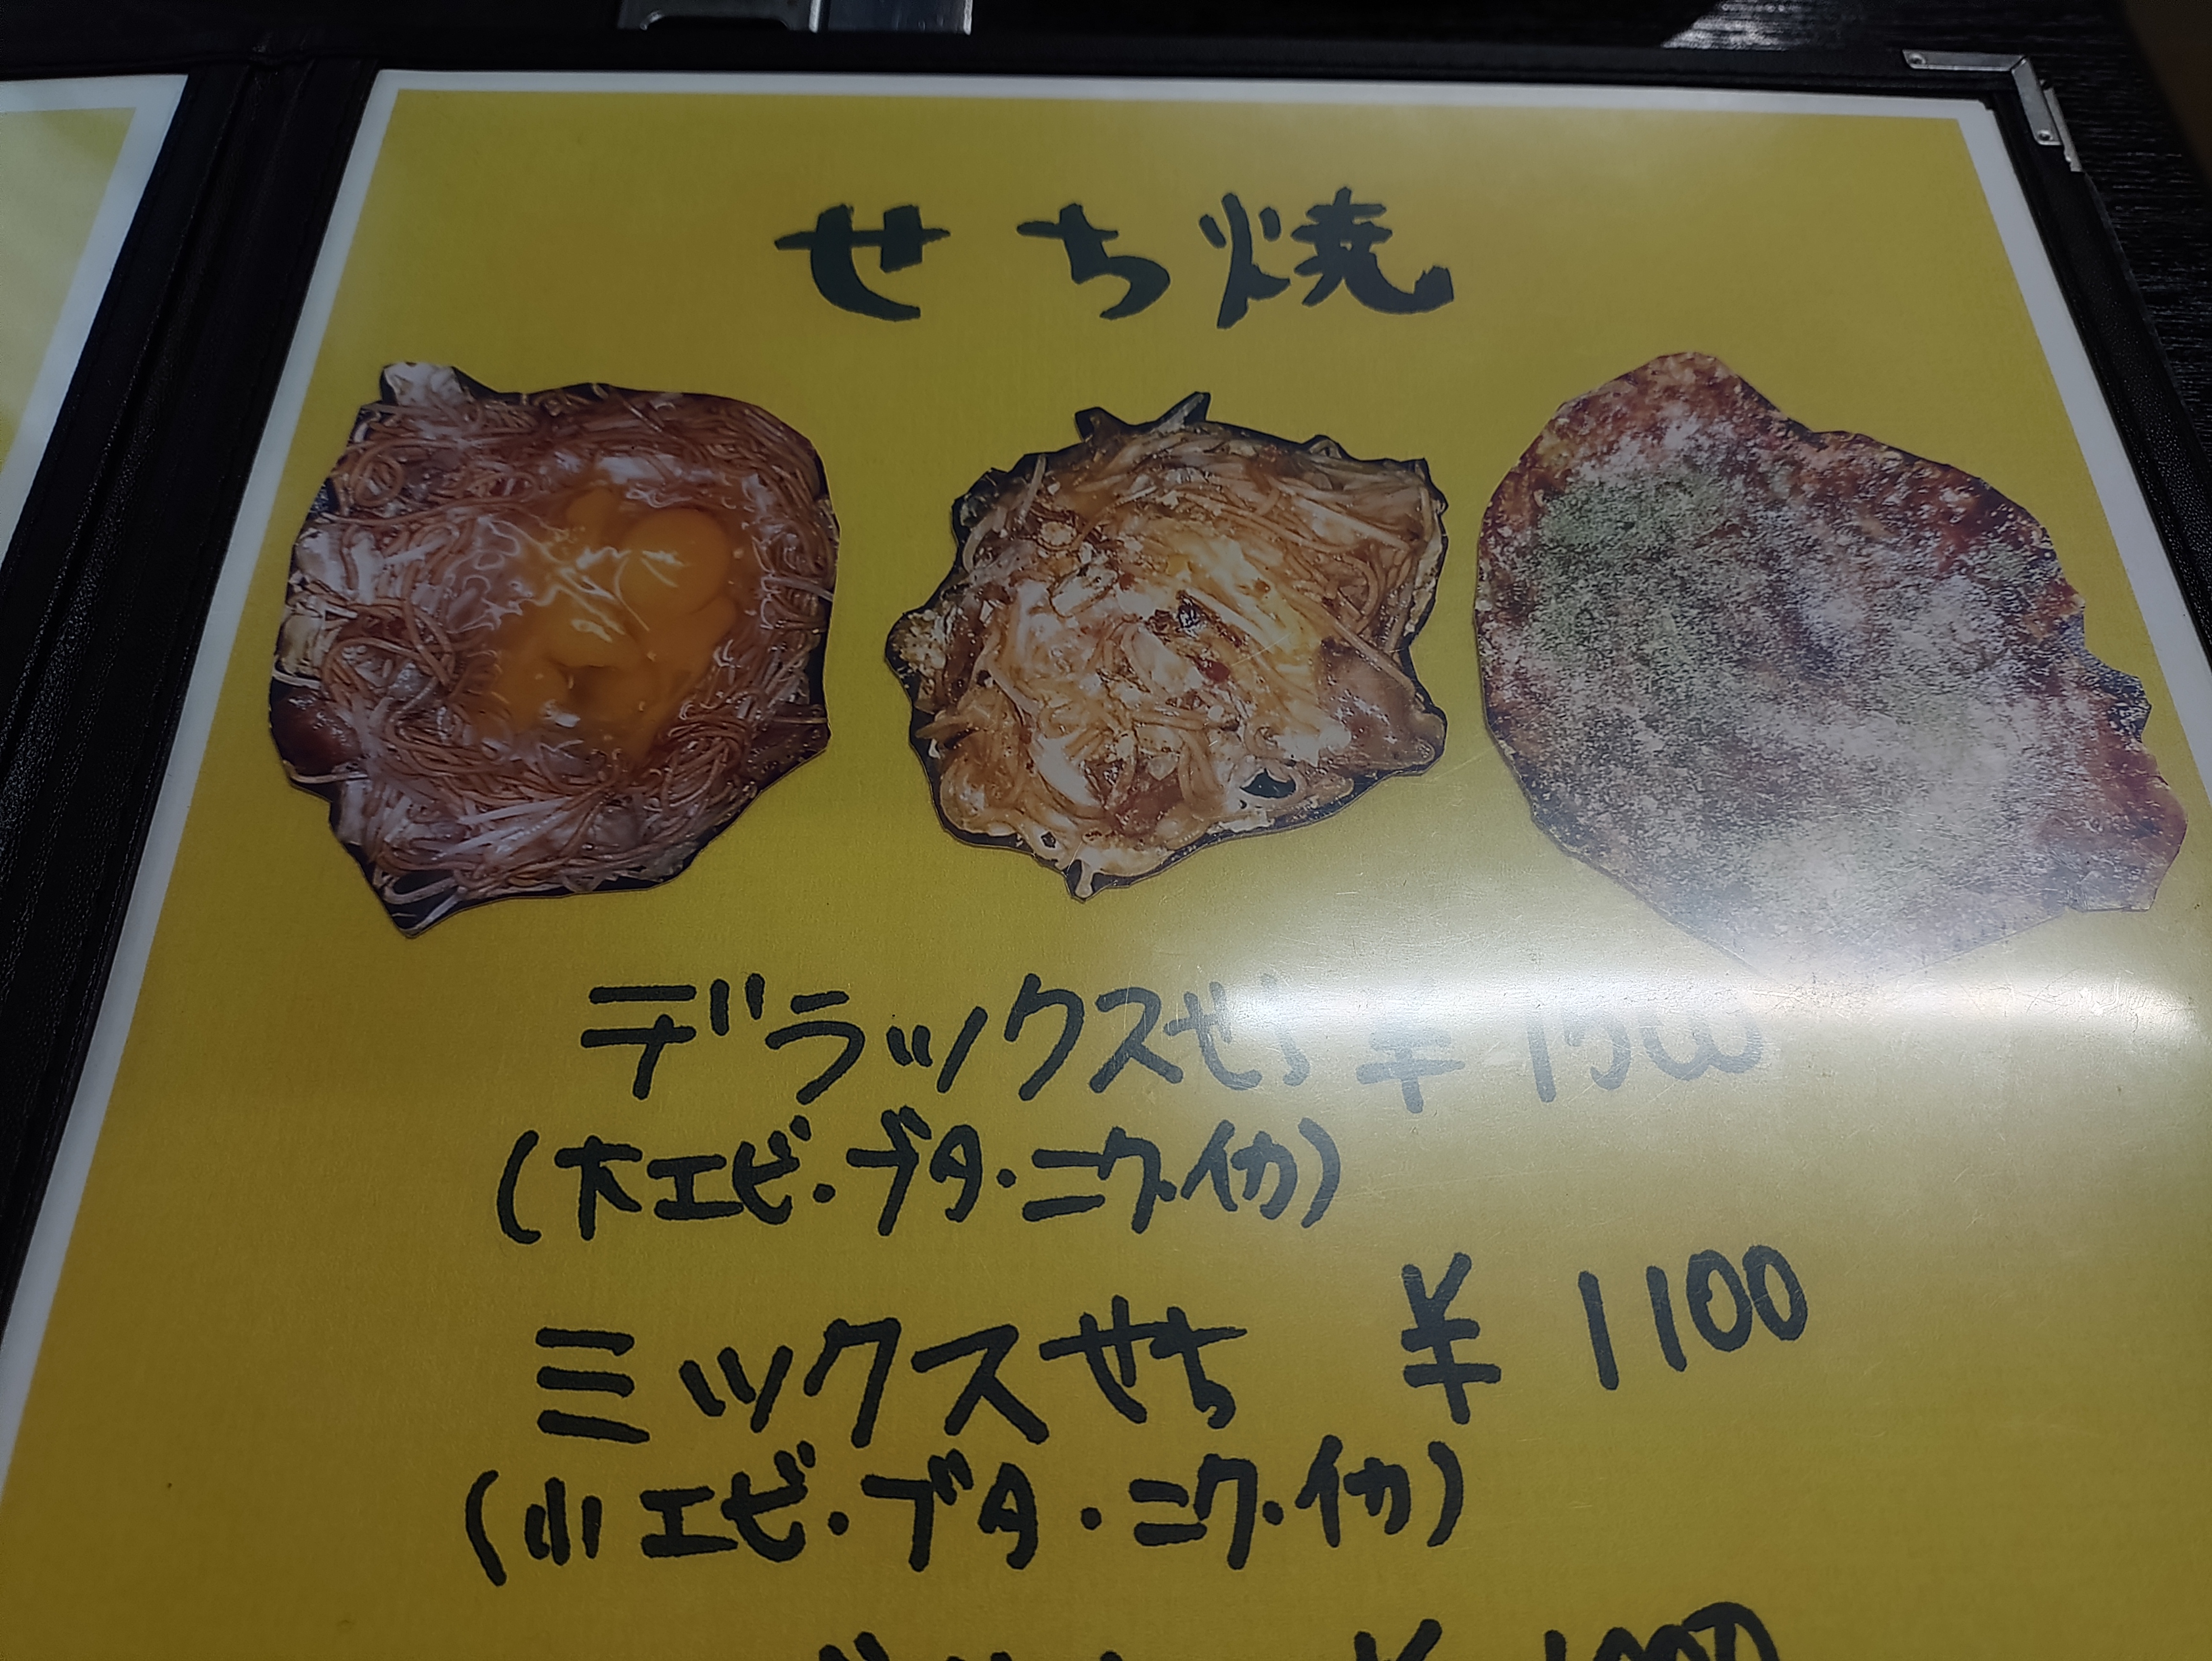 せち焼
デラックスせち ¥1500
(大エビ・ブタ・ニク・イカ)
ミックスせち ¥1100
(小エビ・ブタ・ニク・イカ)